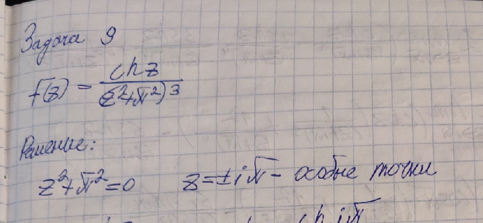 Задача 9
f(z) = ch z / (z²+π²)³
Решение:
z²+π²=0 z=±iπ - особые точки
ch iπ